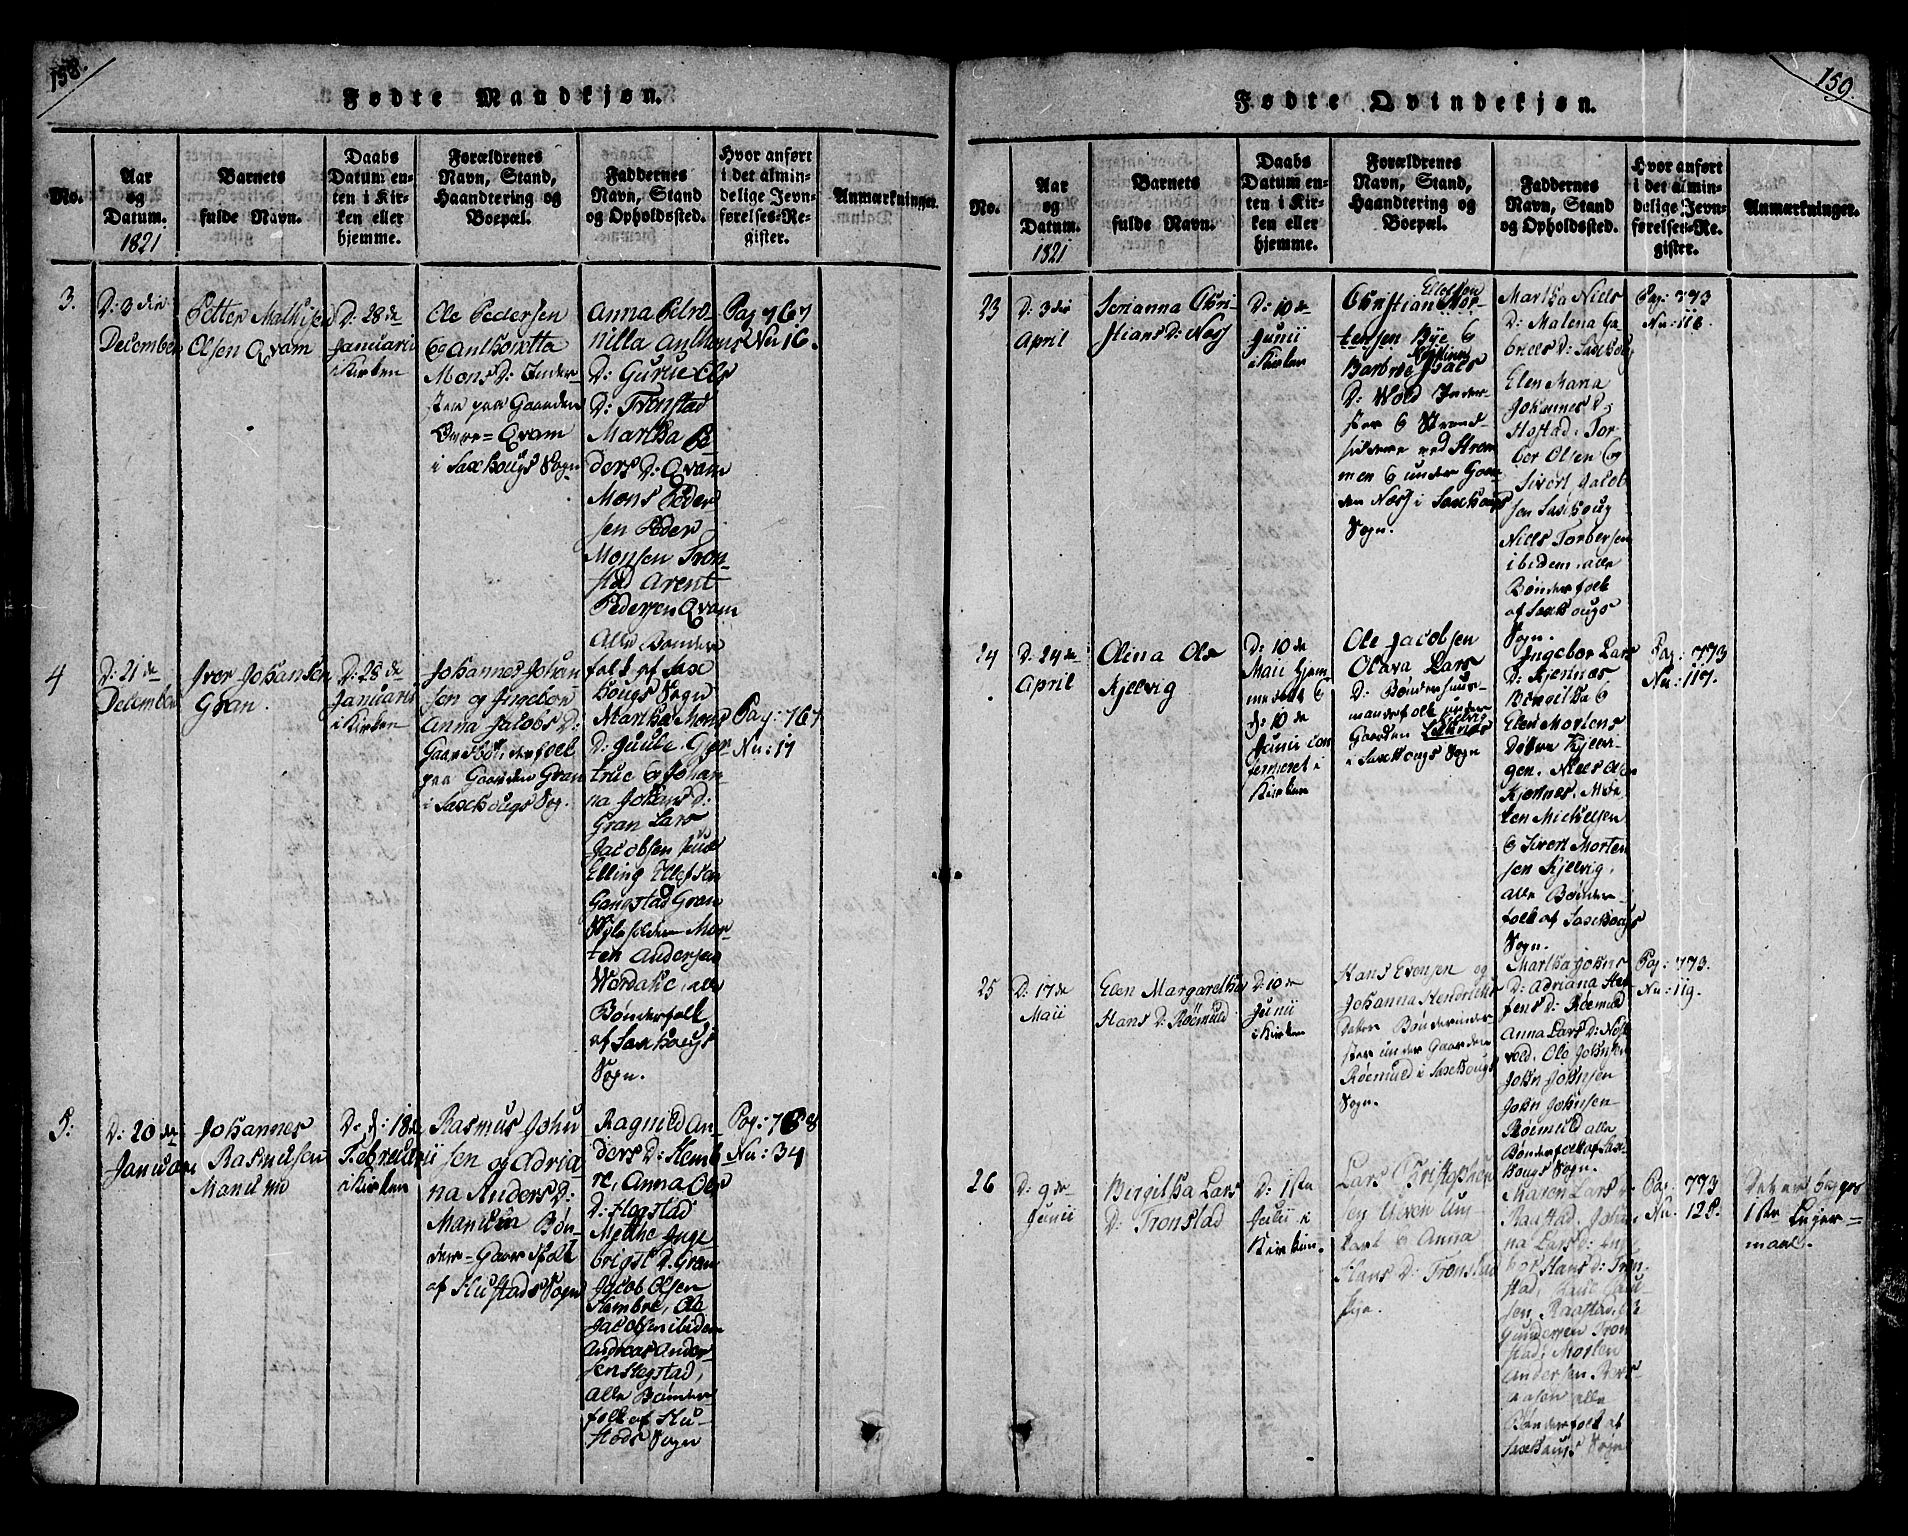 158.
Fødte Mandkjøn.
No.
Aar
og
Datum.
1821
Barnets
fulde Navn.
Daabs
Datum en-
ten i Kir-
ken eller
hjemme.
Forældrenes
Navn, Stand,
Haandtering og
Boepæl.
Faddernes
Navn, Stand
og Opholdssted.
Hvor anført
i det almin-
delige Jevn-
førelses-Re-
gister.
Anmærkninger.
3.
D: 3die
December
Petter Mathisen
Olsen Qvam
D: 28de
Januarii
i Kirken
Ole Pedersen
Og Anthonetta
Mons D: Inder-
ster paa Gaarden
Øvre=Qvam
i Saxhougs Sogn
Anna Petro
nilla Anthons
D: Gurue Ols
D: Tronstad
Martha Pe
ders D: Qvam
Mons Peder
sen Peder
Monsen Tron-
stad Arent
Pedersen Qvam
Alle Bønder
folk af Sax
hougs Sogn
Pag 767
Nu 16.
4
D: 21de
December
Iver Johansen
Gran.
D: 28de
Januarii
i Kirken
Johannes Johan
sen og Ingebor
Anna Jacobs D:
Gaardbønderfolk
paa Gaarden Gran
i Saxhougs Sog.
Martha Mons
D: Juule. Gjer
true & Johan-
na Johans D:
Gran Lars
Jacobsen
Elling Ellefsen
Gangstad Gran
Mor-
ten Andersen
alle
Bønderfolk
af Saxhougs
Sogn.
Pag: 767
Nu: 17
5:
D: 20de
Januari
Johannes
Rasmusen
D: 18de
Februarii
i Kirken
Rasmus Johu
sen og Adria
na Anders D:
Bøn-
der=Gaardsfolk
af Hustads Sogn
Ragnild An-
ders D: Hemb
re, Anna Ols
D: Hogstad
Methe Inge-
brigst D. Gran
Jacob Olsen
Hembre, Ole
Jacobsen ibidem
Andreas Ander-
sen Hegstad,
Alle Bønder
folk af Hu-
stads Sogn
Pag: 768
Nu: 34
159.
Fødte Qvindekjøn.
No.
Aar
og
Datum.
1821
Barnets
fulde Navn.
Daabs
Datum en-
ten i Kir-
ken eller
hjemme.
Forældrenes
Navn, Stand,
Haandtering og
Boepæl.
Faddernes
Navn, Stand
og Opholdssted.
Hvor anført
i det almin-
delige Jevn-
førelses-Re-
gister.
Anmærkninger.
23
D: 3die
April
Serianna Chri-
stians D: Nesj
D: 10de
Junii
i Kirken
Christian Mor-
tensen Bye &
D: Wold Inder-
ster & Strand-
siddere ved Strøm
men & under Gaar
den Næsj i Saxhougs
Sogn.
Martha Niels
D: Malena Ga
briels D: Saxhoug
Elen Maria
Johannes D:
Hostad. Tor-
ber Olsen Og
Sivert Jacob
sen Saxhoug
Niels Torbersen
ibidem. alle
Bønderfolk
af Saxhougs
Sogn.
Pag: 773
Nu: 116.
24
D: 24de
April
Olina Ols
Kjelvig
D: 10de
Maii hjem-
medøbt &
d: 10de
Junii con
fermeret i
Kirken
Ole Jacobsen
Olava Lars
D: Bønderhuus-
mandsfolk under
Gaarden Kjelvig
i Saxhougs Sogn
Ingebor Lars
D: Kjernæs
Birgitha &
Elen Mortens
Døtre Kjelvi-
gen. Niels Ols
Kjernes. Mor-
ten Michelsen
& Sivert Morten
sen Kjelvig.
alle Bønder-
folk af Saxhougs
Sogn.
Pag: 773
Nu: 117.
25
D: 17de
Maii
Elen Margaretha
Hans D: Røemuld
D: 10de
Junii
i Kirken
Hans Evensen og
Johanna Hendrichs
Datter Bønderinder-
ster under Gaarden
Røemuld i Saxhougs
Sogn.
Martha Johns
D: Adriana
D: Røemuld
Anna Lars D:
Ole Johnsen
John Johnsen
John Johnsen
Røemuld alle
Bønderfolk af Sax-
hougs Sogn.
Pag: 773.
Nu: 119.
26
D: 9de
Junii
Birgitha Lars
D: Tronstad
D: 1ste
Julii i
Kirken.
Lars Christophers
sen
& Anna
Hans D: Tronstad
Maren Lars D:
Raastad. Johan
na Lars D:
Hans D: Tron-
stad, Paul
sen, Raastad, Ole
Gundersen Tron
stad, Morten
Andersen
alle
Bønderfolk af
Saxhougs Sogn
Pag: 773
Nu. 125.
Det er begges
1ste Lejer=
maal.